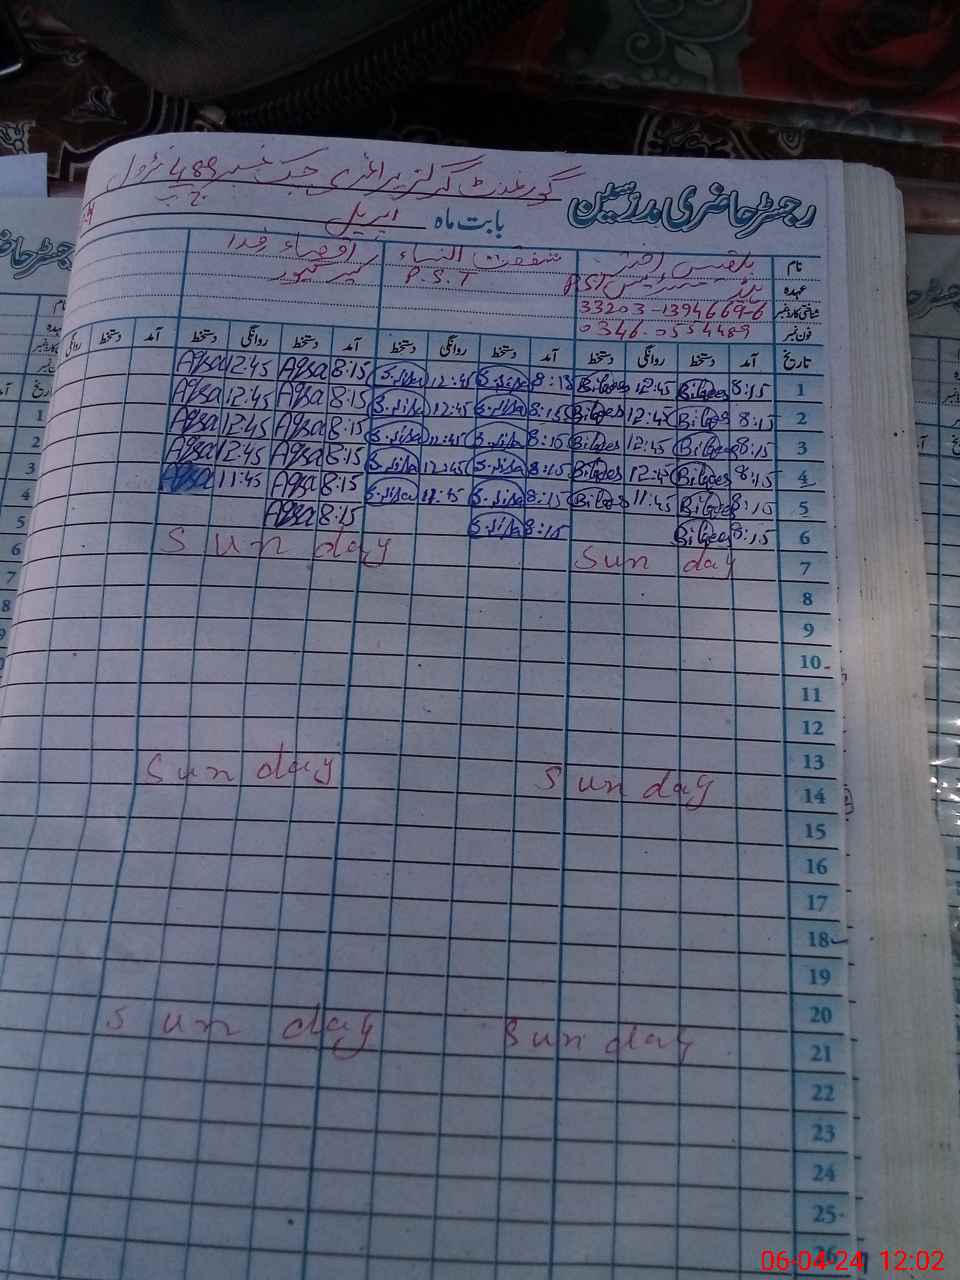 رجسٹر حاضری مدرسین گورنمنٹ گرلز پرائمری چک نمبر 489
بابت ماہ اپریل
نام بلقیس اختر شفقت النساء
عہدہ P.S.T
شناختی کارڈ نمبر 33203-1394669-6
فون نمبر 0346.0554489
تاریخ آمد دستخط روانگی دستخط آمد دستخط روانگی دستخط آمد دستخط روانگی دستخط آمد دستخط روانگی
1 8:15 Bilqees 12:45 Bilqees 8:15 S.nisa 12:45 S.nisa 8:15 Aqsa 12:45 Aqsa
2 8:15 Bilqees 12:45 Bilqees 8:15 S.nisa 12:45 S.nisa 8:15 Aqsa 12:45 Aqsa
3 8:15 Bilqees 12:45 Bilqees 8:15 S.nisa 12:45 S.nisa 8:15 Aqsa 12:45 Aqsa
4 8:15 Bilqees 12:45 Bilqees 8:15 S.nisa 12:45 S.nisa 8:15 Aqsa 12:45 Aqsa
5 8:15 Bilqees 11:45 Bilqees 8:15 S.nisa 11:45 S.nisa 8:15 Aqsa 11:45 Aqsa
6 8:15 Bilqees 8:15 S.nisa 8:15 Aqsa
7 Sunday Sunday
8
9
10
11
12
13
14 Sunday Sunday
15
16
17
18
19
20
21 Sunday Sunday
22
23
24
25
26
06-04-24 12:02